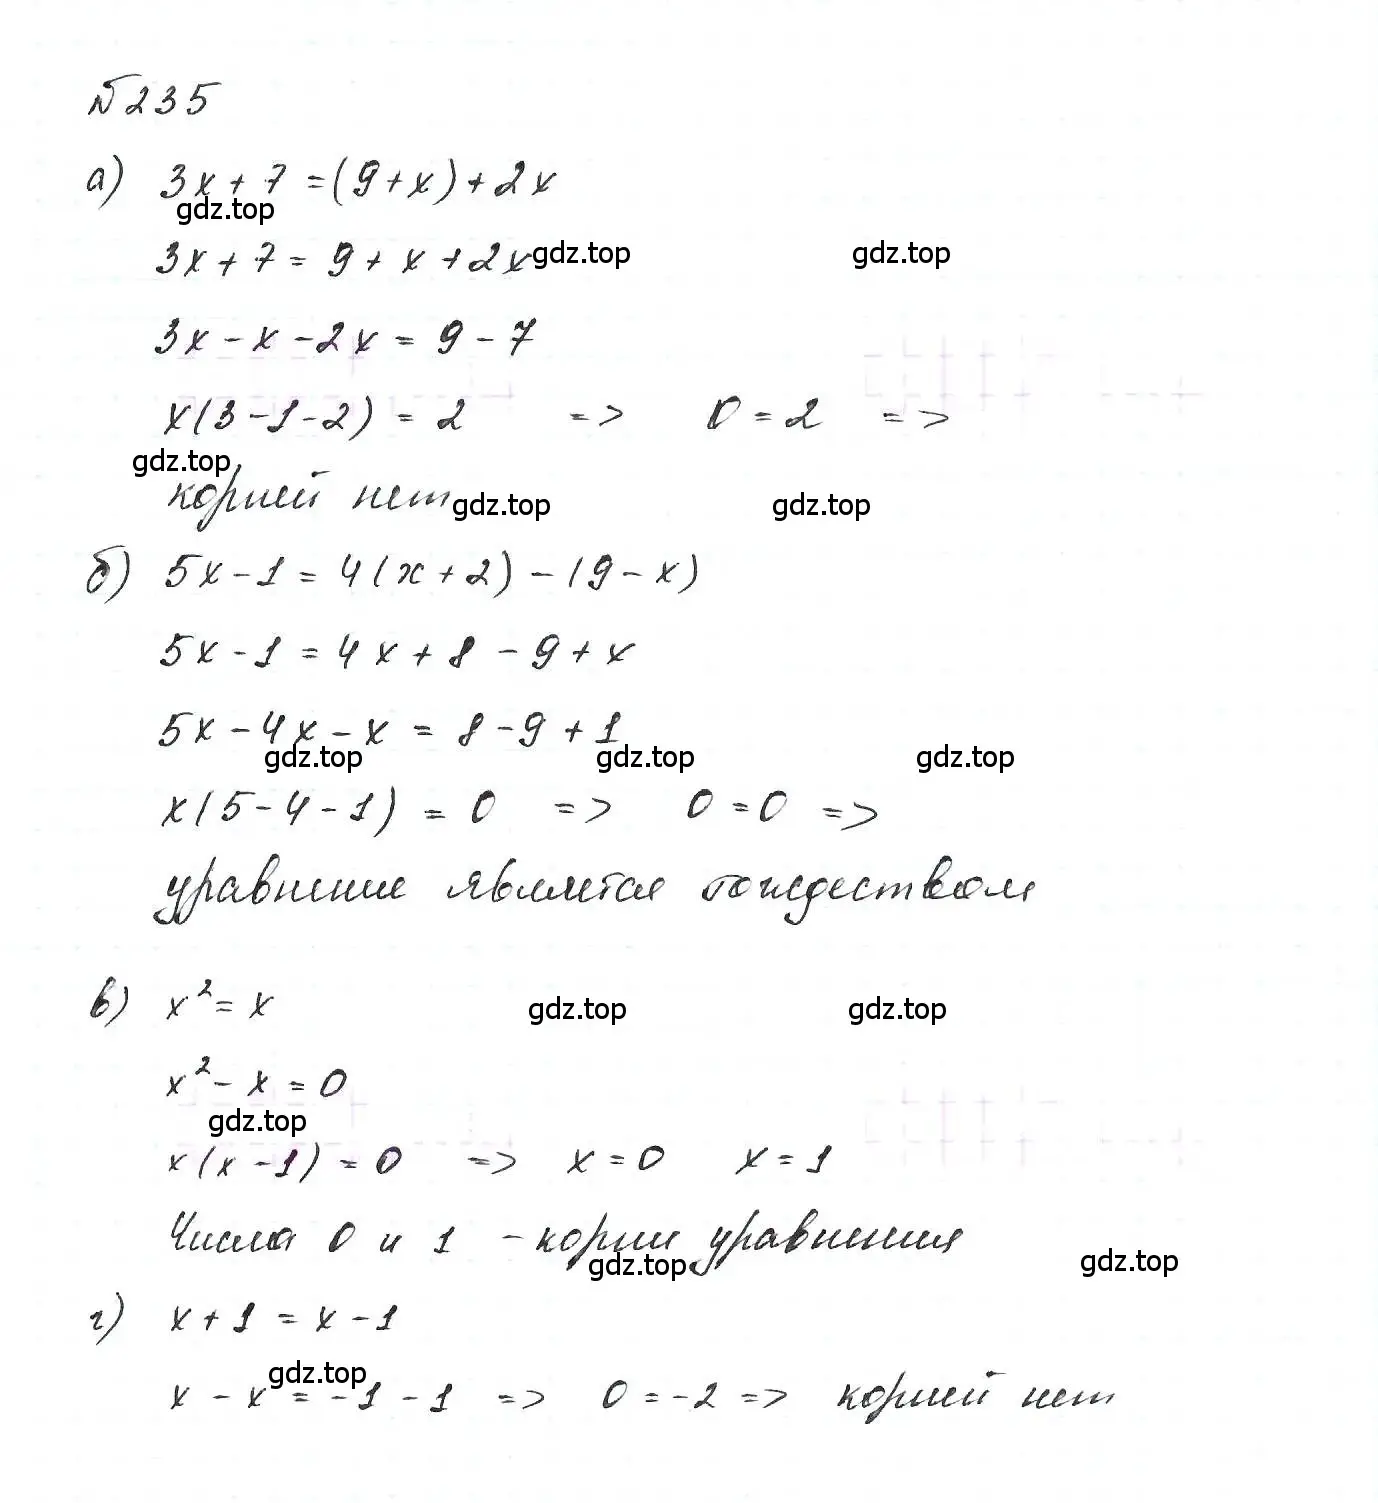 №235
а) 3x + 7 = (9 + x) + 2x
gdz.top
3x + 7 = 9 + x + 2x gdz.top gdz.top
3x - x - 2x = 9 - 7
x(3 - 1 - 2) = 2 => 0 = 2 =>
gdz.top
корней нет gdz.top gdz.top
б) 5x - 1 = 4(x + 2) - (9 - x)
5x - 1 = 4x + 8 - 9 + x
5x - 4x - x = 8 - 9 + 1
gdz.top gdz.top gdz.top
x(5 - 4 - 1) = 0 => 0 = 0 =>
уравнение является тождеством
в) x² = x gdz.top gdz.top
x² - x = 0
gdz.top
x(x - 1) = 0 => x = 0 x = 1
Числа 0 и 1 - корни уравнения
gdz.top gdz.top
г) x + 1 = x - 1
gdz.top
x - x = -1 - 1 => 0 = -2 => корней нет